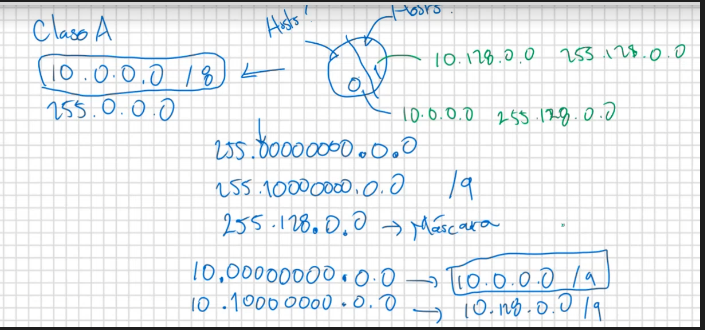 Clase A
Hosts
Hosts.
10.0.0.0 /8
255.0.0.0
0
10.128.0.0 255.128.0.0
10.0.0.0 255.128.0.0
255.00000000.0.0
255.10000000.0.0 /9
255.128.0.0 → Máscara
10.00000000.0.0 → 10.0.0.0 /9
10.10000000.0.0 → 10.128.0.0 /9